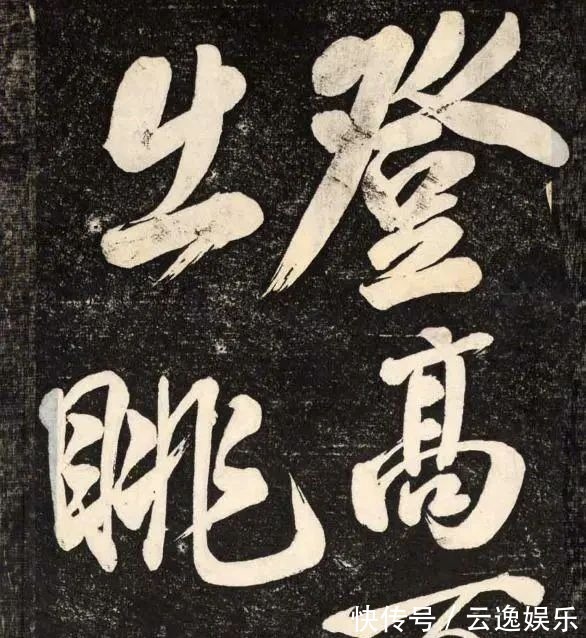 登高
出眺
快传号/云逸娱乐